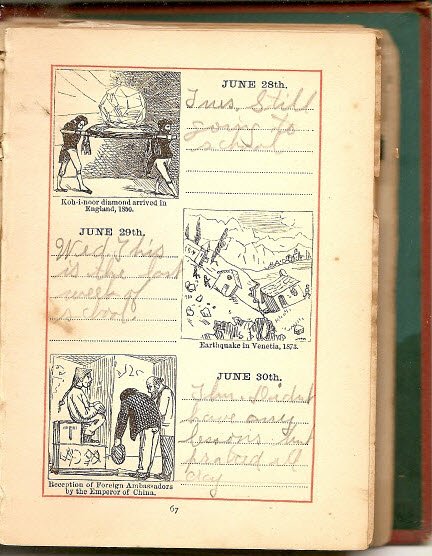 JUNE 28th.
Tues. Still
going to
school
Koh-i-noor diamond arrived in
England, 1850.
JUNE 29th,
Wed. This
is the last
week of
school.
Earthquake in Venetia, 1873.
JUNE 30th.
Thur. Didnt
have any
lessons but
all
day
Reception of Foreign Ambassadors
by the Emperor of China.
67